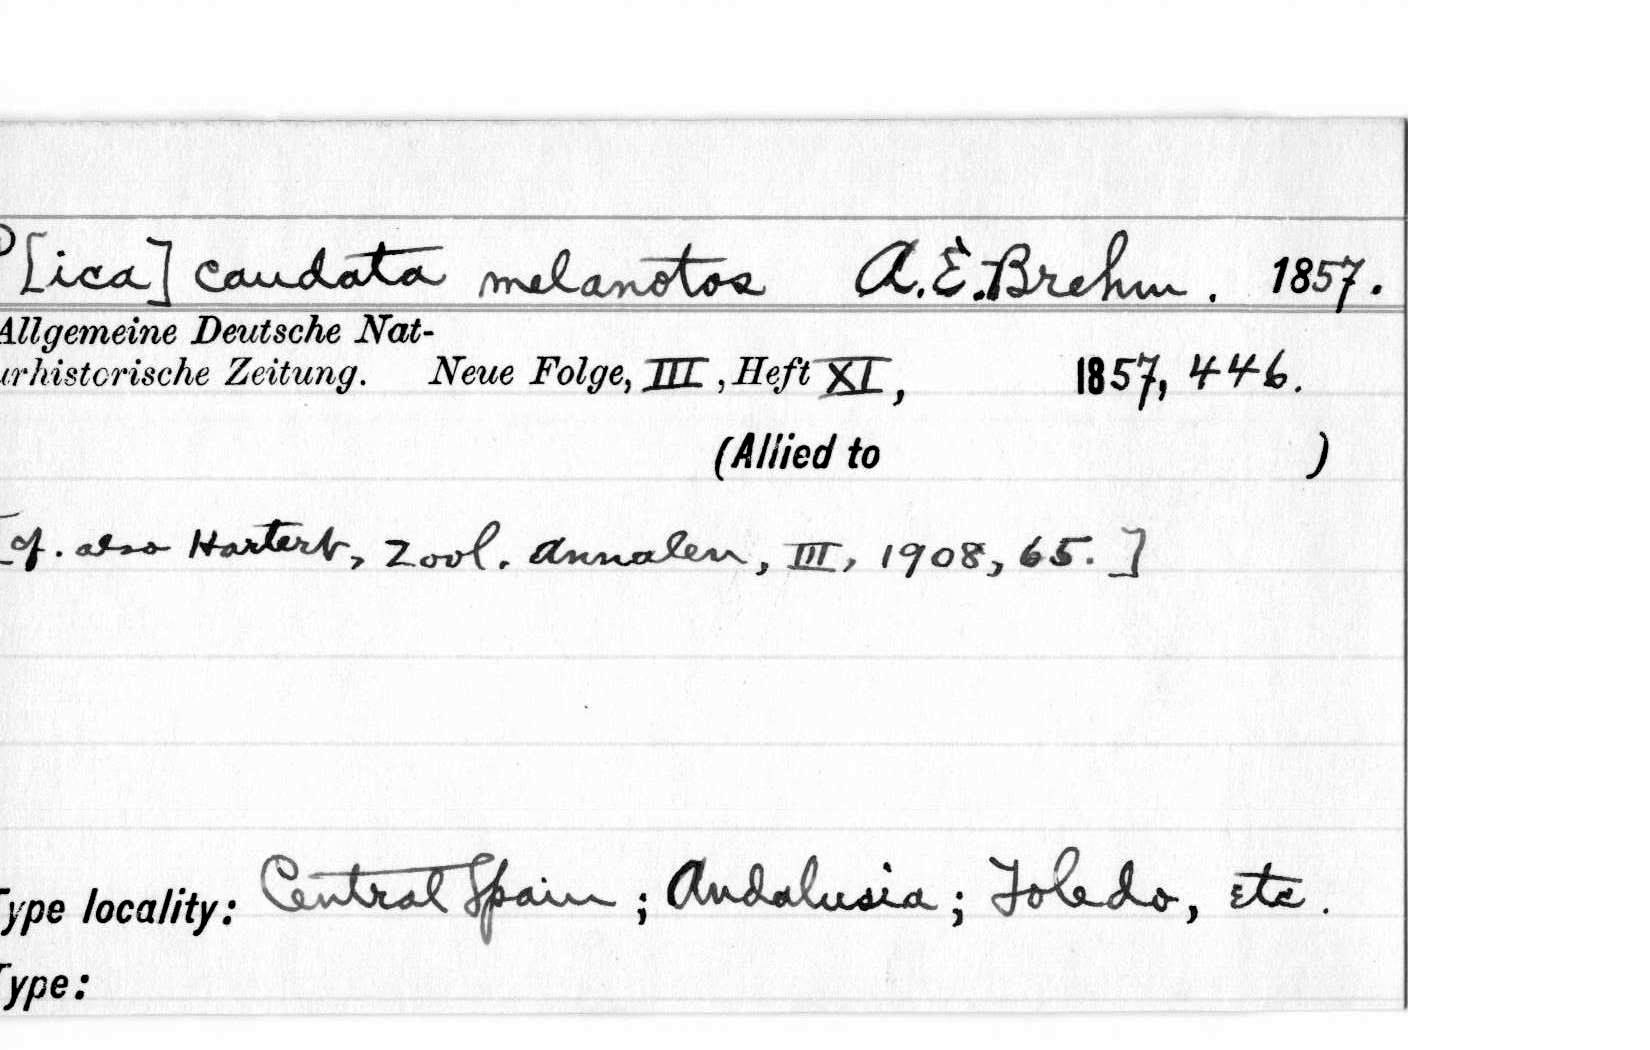 P[ica] caudata melanotos A.E.Brehm. 1857.
Allgemeine Deutsche Nat-
urhistorische Zeitung. Neue Folge, III, Heft XI, 1857, 446.
(Allied to )
[cf. also Hartert, Zool. Annalen, III, 1908, 65.]
Type locality: Central Spain; Andalusia; Toledo, etc.
Type: